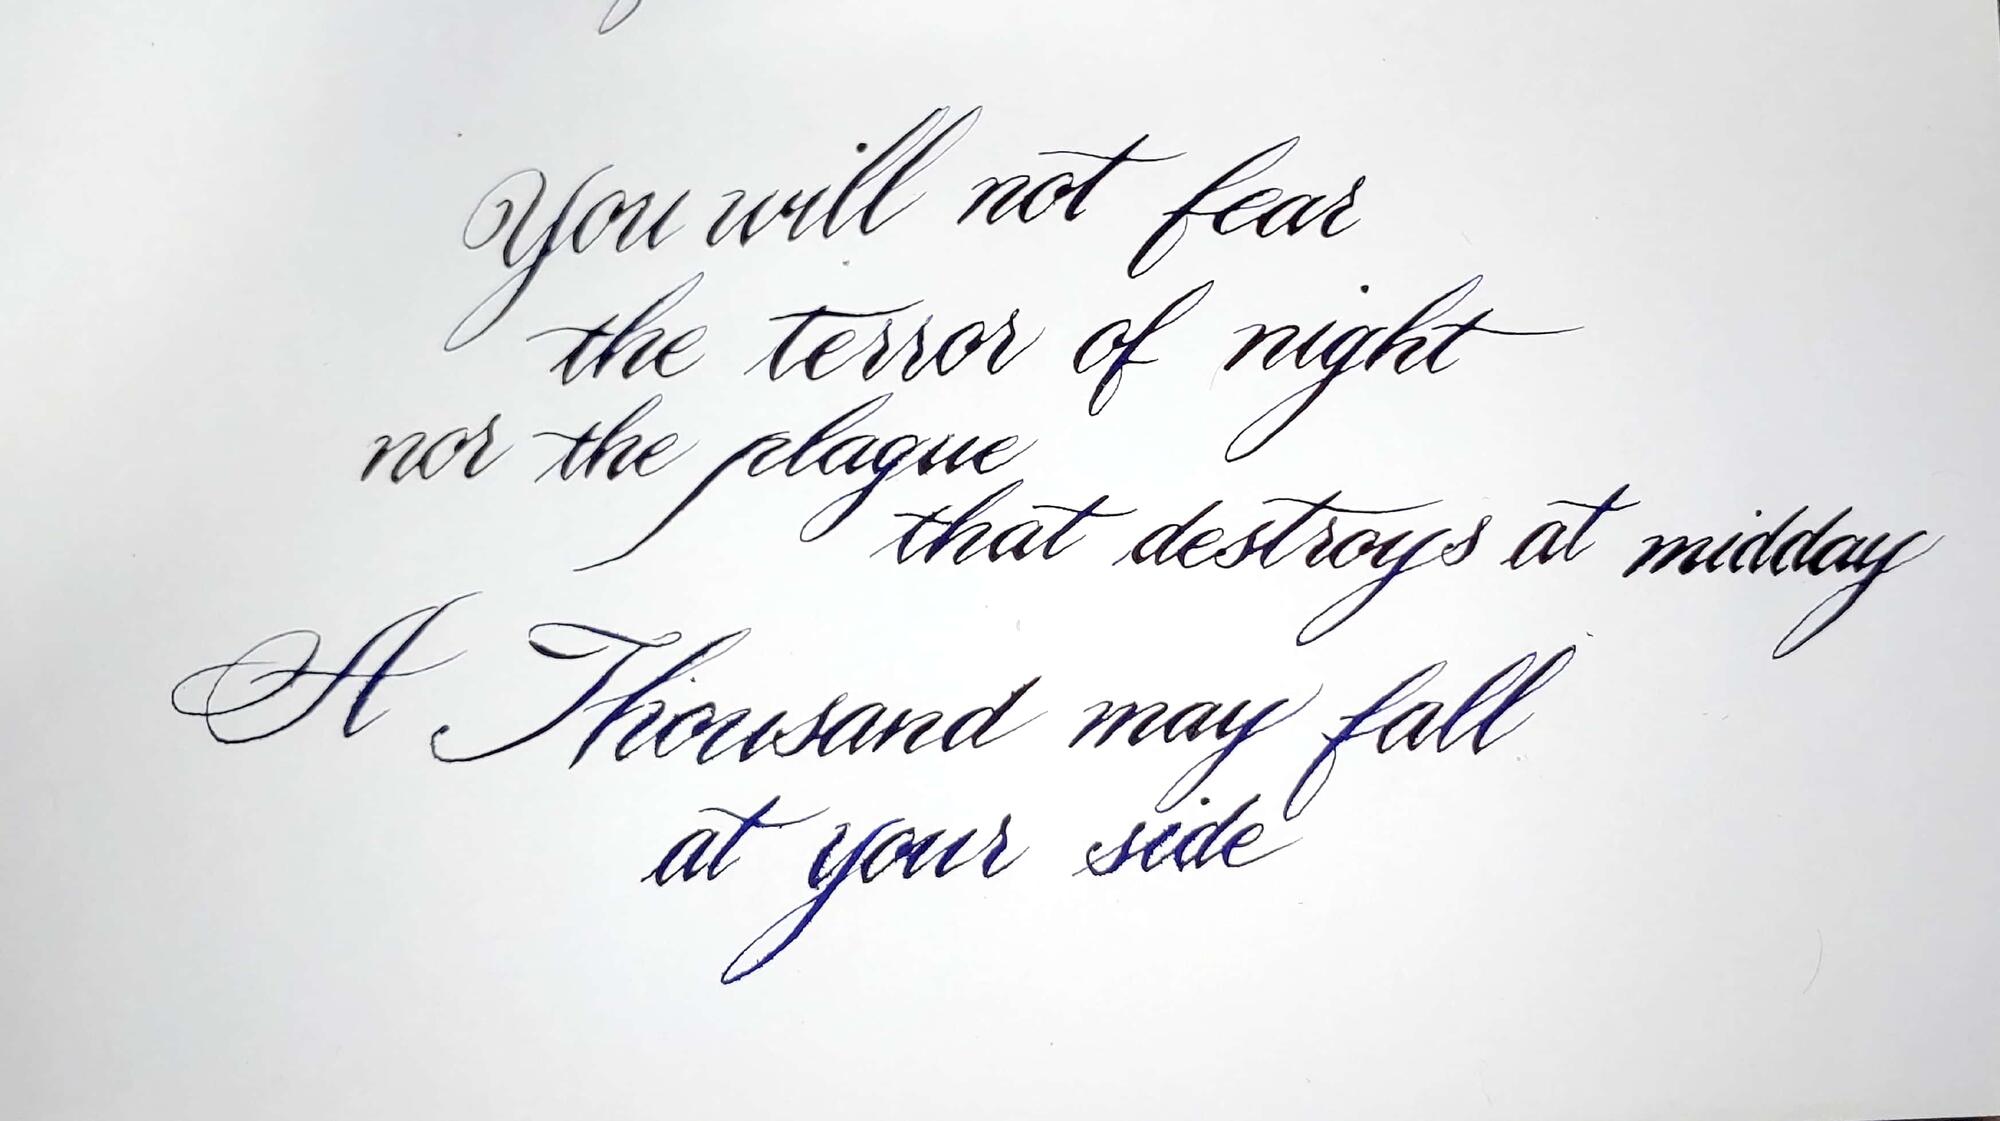 You will not fear
the terror of night
nor the plague
that destroys at midday
A Thousand may fall
at your side